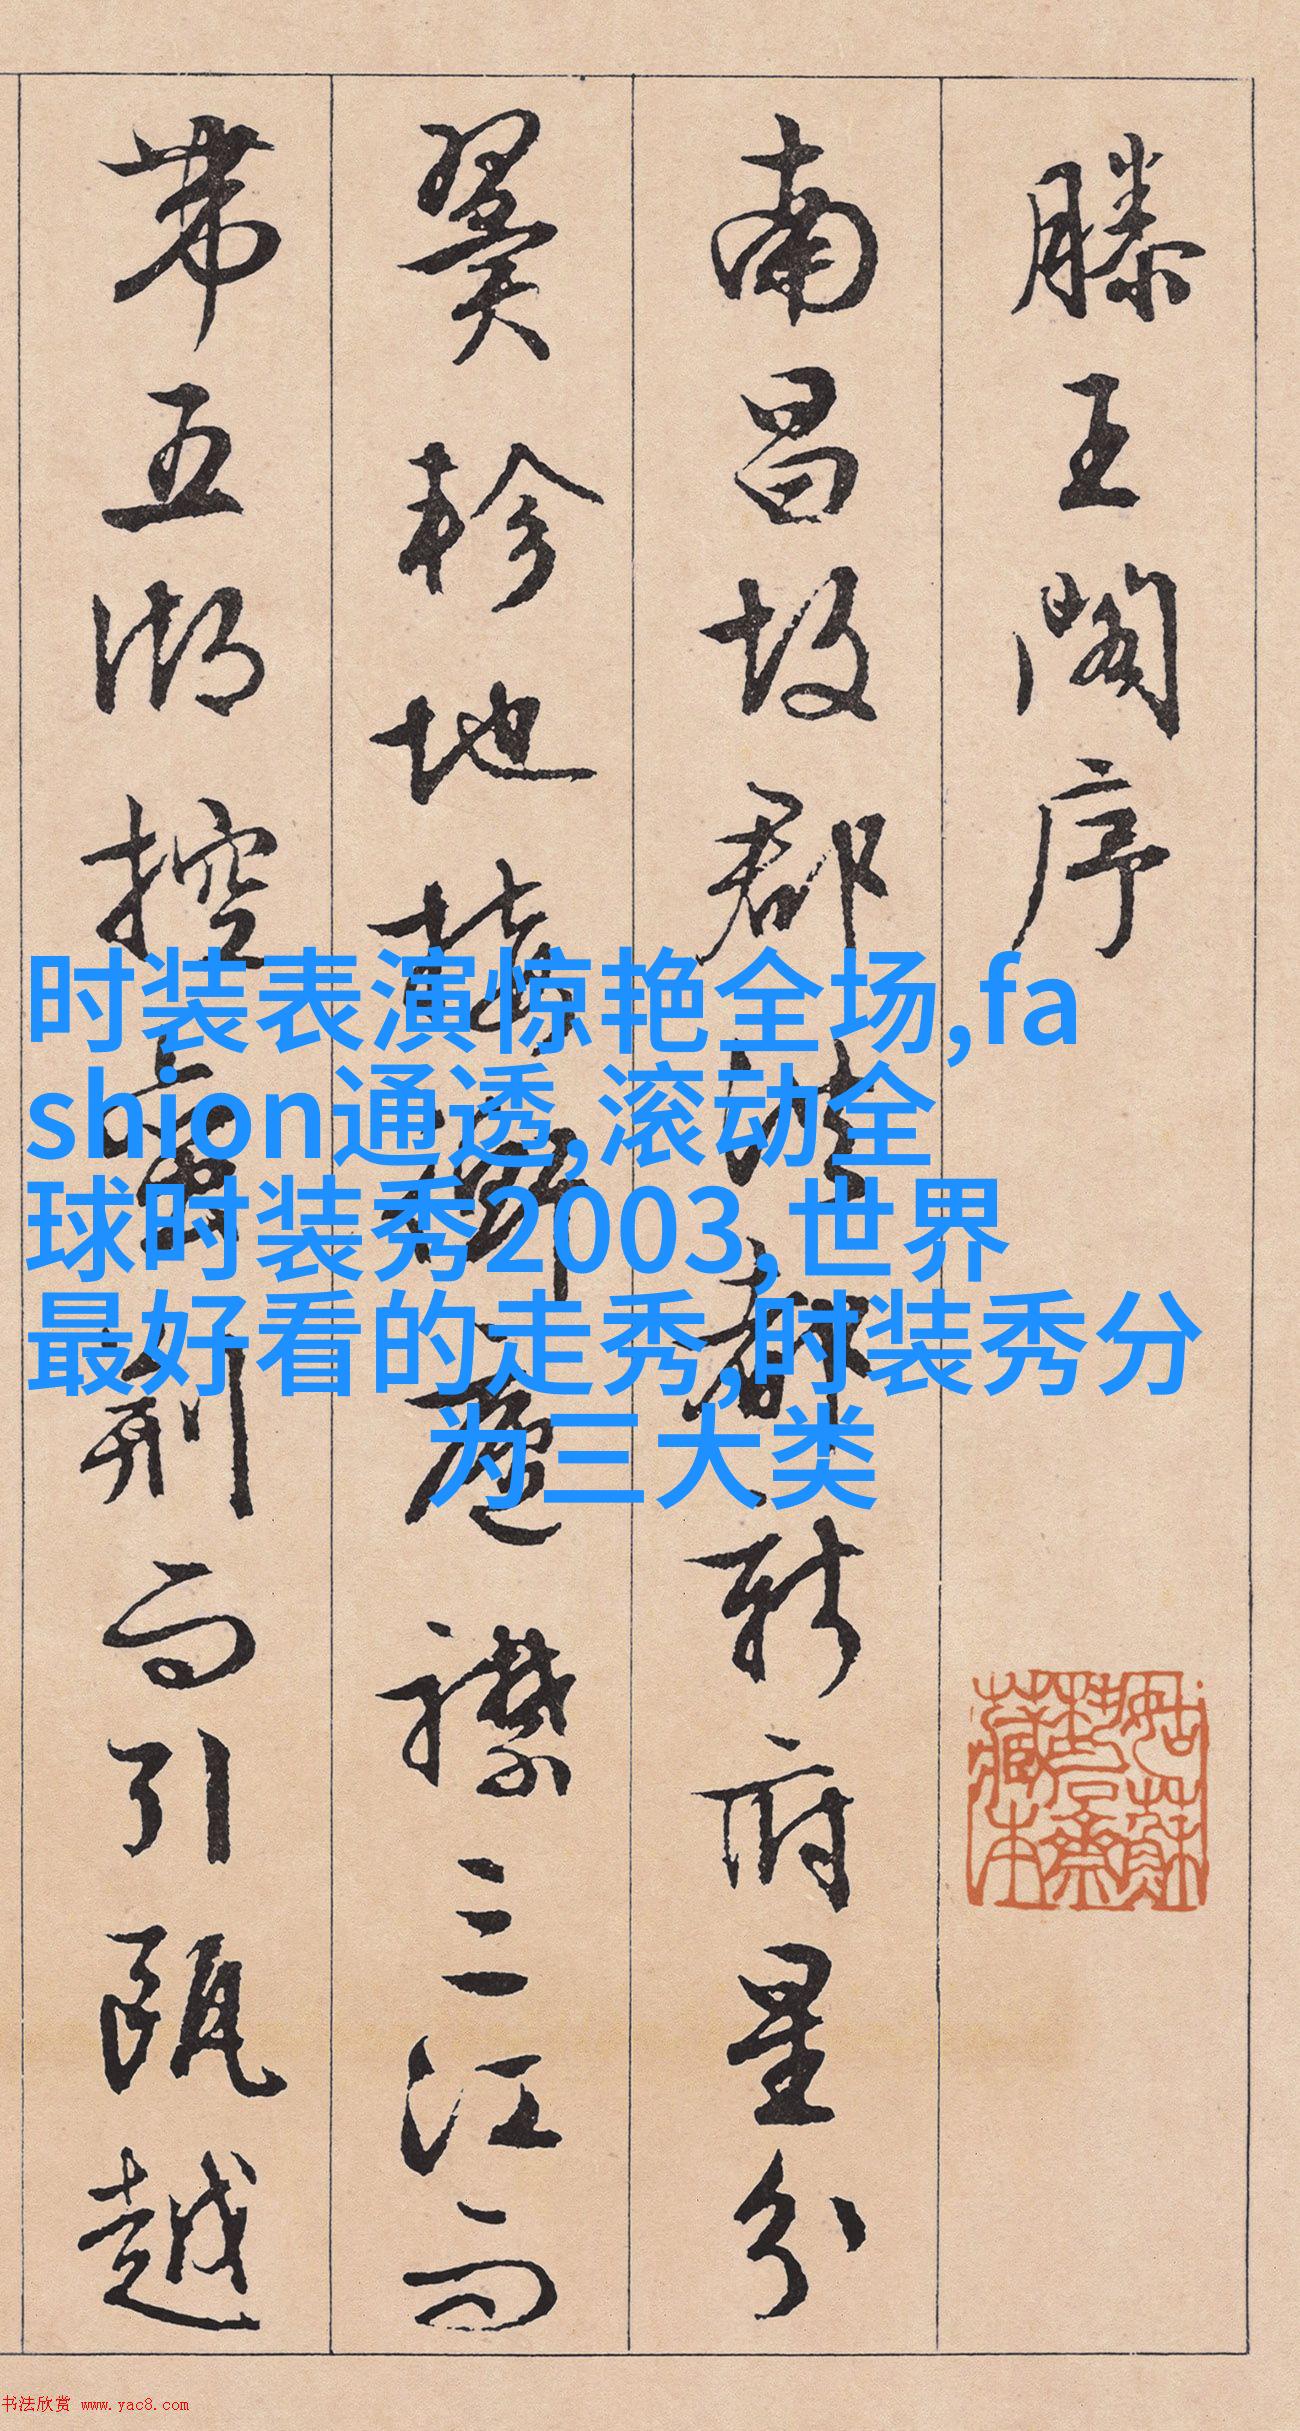 滕王閣序
南昌故郡洪都新府星分
翼軫地接衡廬襟三江而
帶五湖控蠻荆而引甌越
时装表演惊艳全场,fa
shion通透,滚动全
球时装秀2003,世界
最好看的走秀,时装秀分
为三大类
书法欣赏 www.yac8.com